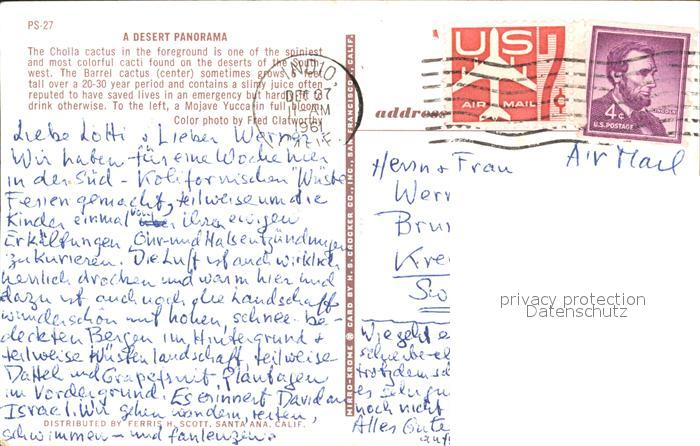 PS-27
A DESERT PANORAMA
The Cholla cactus in the foreground is one of the spiniest
and most colorful cacti found on the deserts of the South-
west. The Barrel cactus (center) sometimes grows feet
tall over a 20-30 year period and contains a slimy juice often
reputed to have saved lives in an emergency but hardly
drink otherwise. To the left, a Mojave Yucca in full bloom.
Color photo by Fred Clatworthy
INDIO
DEC 27
AM
1961
CALIF.
US
AIR MAIL
7¢
4¢
LINCOLN
U.S. POSTAGE
address
Air Mail
Liebe Lotti + Lieber Werner
Wir haben für eine Woche hier
in der Süd-Kalifornischen Wüste
Ferien gemacht, teilweise um die
Kinder einmal von ihren ewigen
Erkältungen Ohr- und Halsentzündungen
zu kurieren. Die Luft ist auch wirklich
herrlich drocken und warm hier und
dazu ist auch noch die Landschaft
wunderschön mit hohen, schnee be-
deckten Bergen im Hintergrund +
teilweise Wüstenlandschaft, teilweise
Dattel und Grapefruit Plantagen
im Vordergrund. Es erinnert David an
Israel. Wir gehen wandern, reiten,
schwimmen - und faulenzen.
DISTRIBUTED BY FERRIS H. SCOTT, SANTA ANA, CALIF.
MIRRO-KROME ® CARD BY H. S. CROCKER CO., INC., SAN FRANCISCO, CALIF.
Herrn + Frau
Wern
Brun
Kre
Wie geht e
schreibe
trotzdem
es sehr gu
noch nicht
Alles Gute
privacy protection
Datenschutz